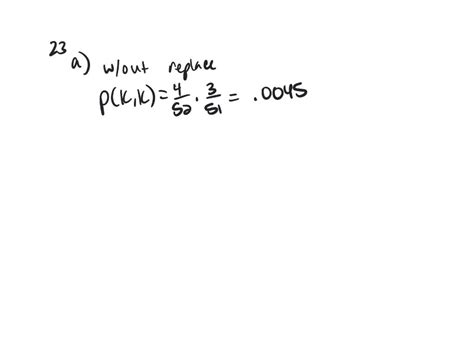 23
a) w/out replace
P(K,K) = 4/52 · 3/51 = .0045